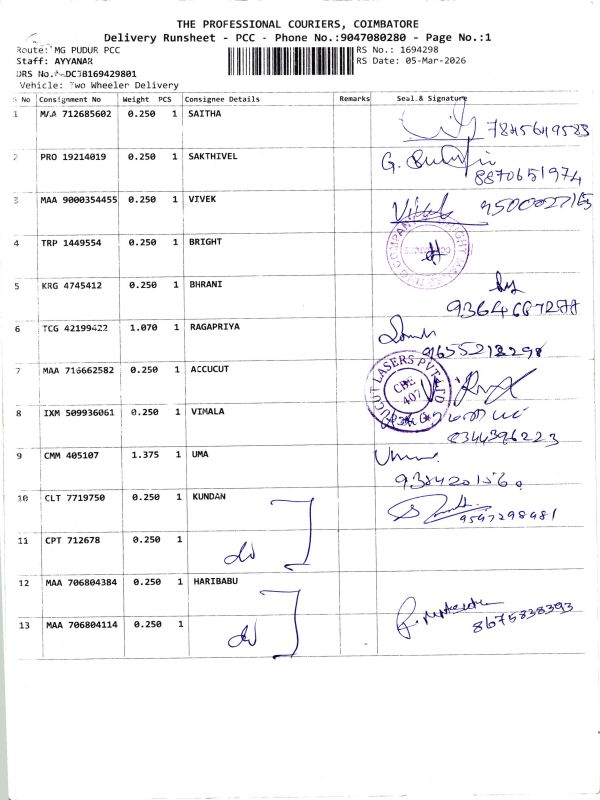 THE PROFESSIONAL COURIERS, COIMBATORE
Delivery Runsheet - PCC - Phone No.:9047080280 - Page No.:1
Route: MG PUDUR PCC
RS No.: 1694298
Staff: AYYANAR
RS Date: 05-Mar-2026
DRS No.
DCJB169429801
Vehicle: Two Wheeler Delivery
S No Consignment No Weight PCS Consignee Details Remarks Seal & Signature
1 MAA 712685602 0.250 1 SAITHA 7845649583
2 PRO 19214019 0.250 1 SAKTHIVEL G. 8870651974
3 MAA 9000354455 0.250 1 VIVEK Vivek
4 TRP 1449554 0.250 1 BRIGHT
5 KRG 4745412 0.250 1 BHRANI
6 TCG 42199422 1.070 1 RAGAPRIYA 9655218298
7 MAA 716662582 0.250 1 ACCUCUT
CBE
407
8 IXM 509936061 0.250 1 VIMALA 8344396223
9 CMM 405107 1.375 1 UMA Uma
10 CLT 7719750 0.250 1 KUNDAN 9597298981
11 CPT 712678 0.250 1
do
12 MAA 706804384 0.250 1 HARIBABU
13 MAA 706804114 0.250 1 8675838393
do